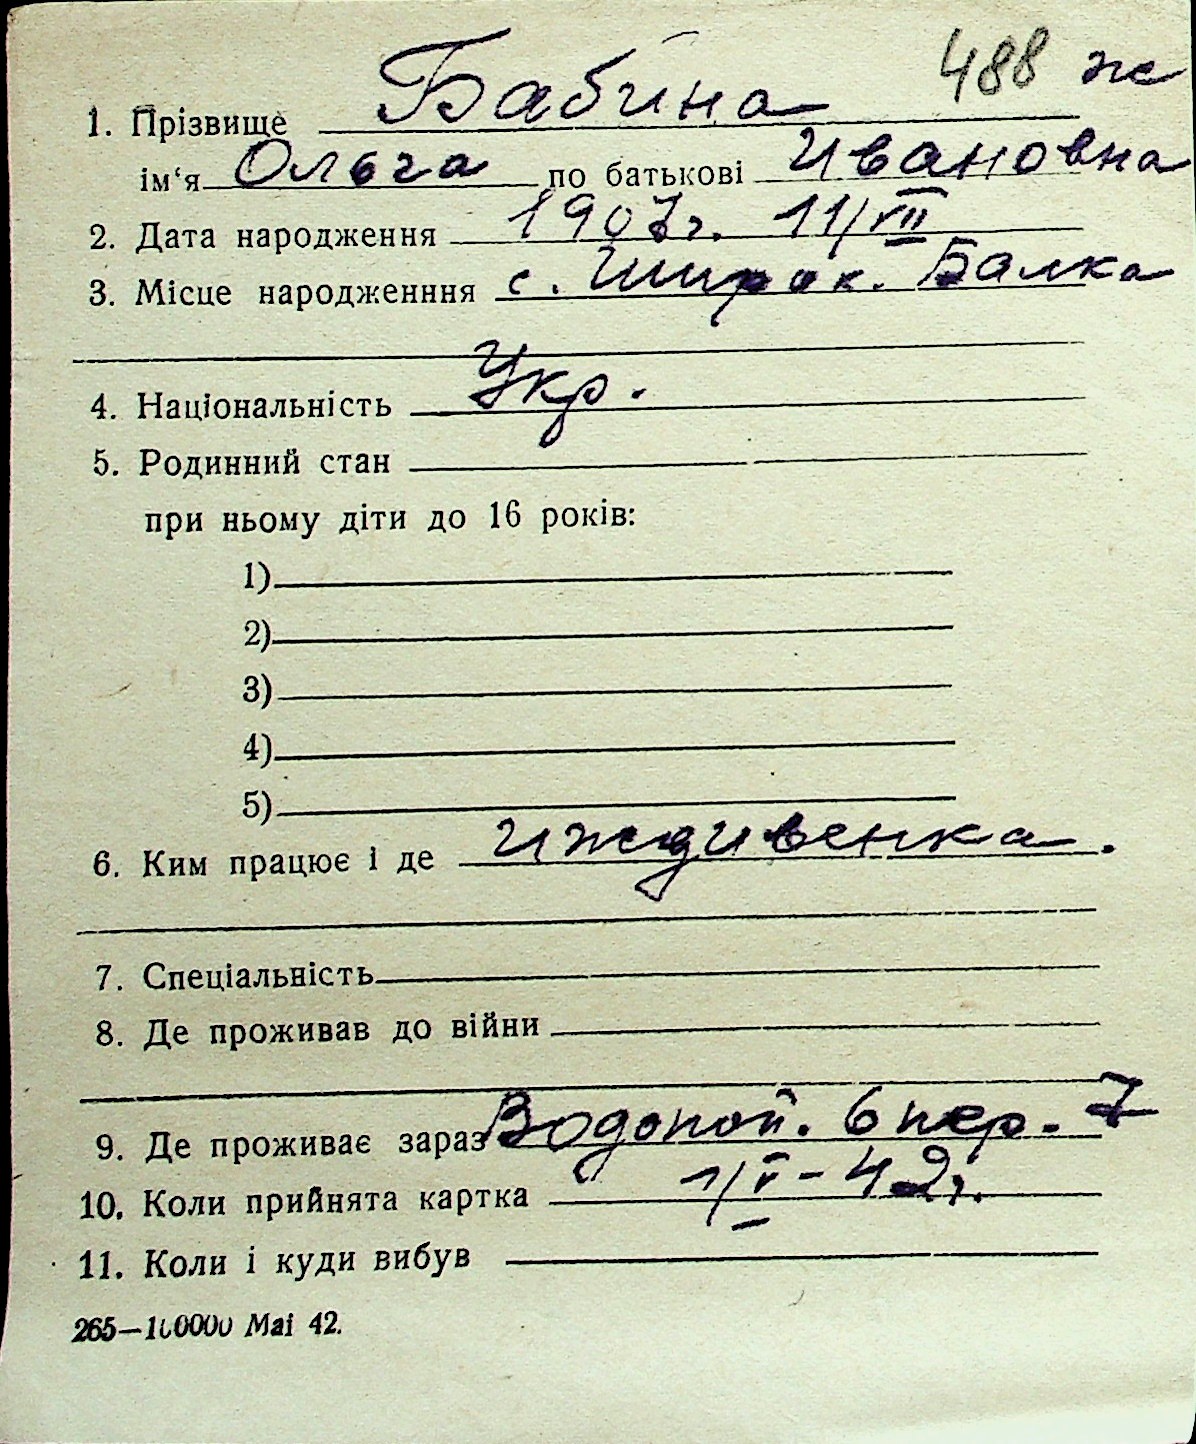 488 ж
1. Прізвище Бабина
ім‘я Ольга по батькові Ивановна
2. Дата народження 1907г. 11/VII
3. Місце народженння с. Широк. Балка
4. Національність Укр.
5. Родинний стан
при ньому діти до 16 років:
1)
2)
3)
4)
5)
6. Ким працює і де иждивенка.
7. Спеціальність
8. Де проживав до війни
9. Де проживає зараз Водопой. 6 пер. 7
10. Коли прийнята картка 1/V-42г.
11. Коли і куди вибув
265—100000 Mai 42.